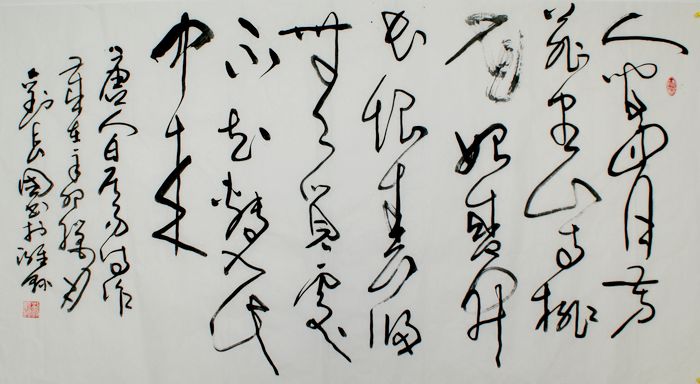 人間四月芳
菲盡山寺桃
花始盛開
長恨春歸
無覓處
不知轉入此
中來
唐人白居易詩作
歲在辛卯臘月
劉長國書於